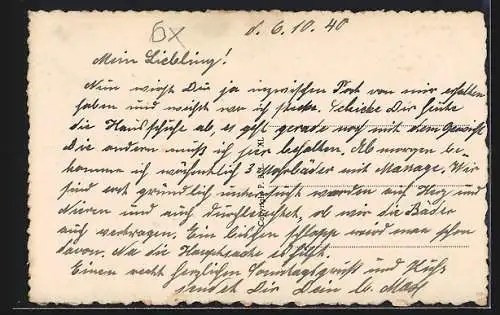 6x
d. 6.10.40
Mein Liebling!
Nun wirst Du ja inzwischen Post von mir erhalten
haben und weißt wo ich stecke. Schicke Dir heute
die Handschuhe ab, es geht gerade noch mit dem Gewicht
Die andern muß ich hier behalten. Ab morgen be-
komme ich wöchentlich 3 Moorbäder mit Massage. Wir
sind erst gründlich untersucht worden auf Herz und
Nieren und auch durchleuchtet, ob wir die Bäder
auch vertragen. Ein bißchen schlapp wird man schon
davon. Na die Hauptsache es hilft.
Einen recht herzlichen Sonntagsgruß und Kuß
sendet Dir Dein lb.
Copyright P.